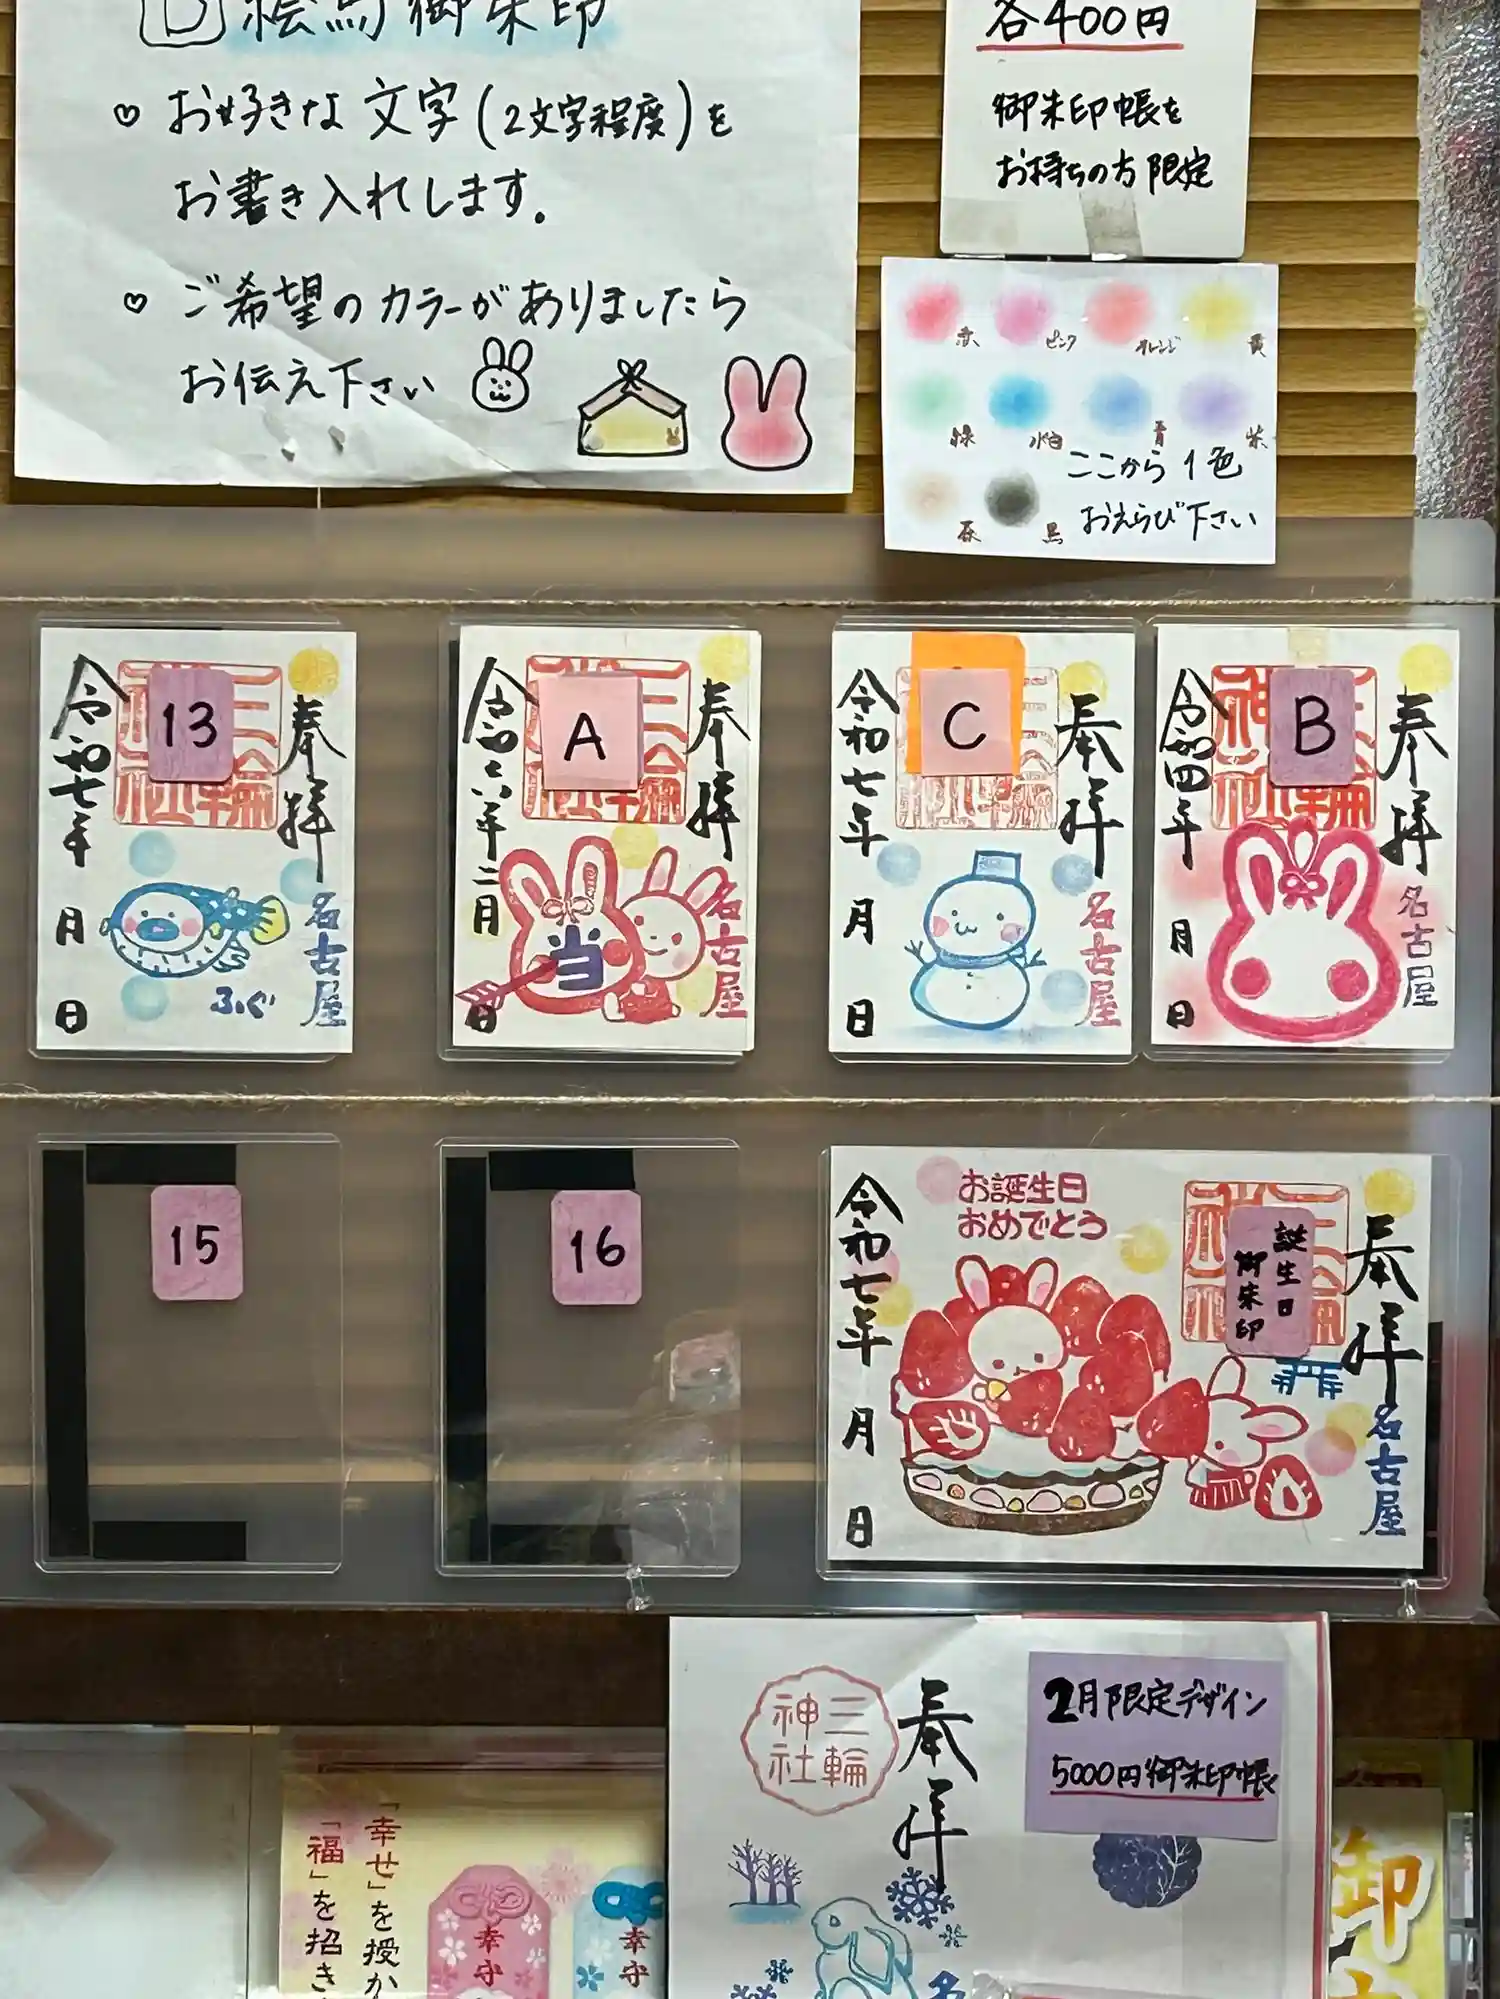 D 絵馬御朱印
♡ お好きな文字(2文字程度)を
お書き入れします。
♡ ご希望のカラーがありましたら
お伝え下さい
各400円
御朱印帳を
お持ちの方限定
赤 ピンク オレンジ 黄
緑 水色 青 紫
灰 黒
ここから1色
おえらび下さい
奉拝
13
令和七年
月
日
名古屋
ふぐ
奉拝
A
令和六年二月
日
当
名古屋
奉拝
C
令和七年
月
日
名古屋
奉拝
B
令和四年
月
日
名古屋
15
16
お誕生日
おめでとう
奉拝
誕生日
御朱印
令和七年
月
日
名古屋
奉拝
三輪
神社
2月限定デザイン
5000円御朱印帳
「幸せ」を授か
「福」を招き
幸守
幸守
御